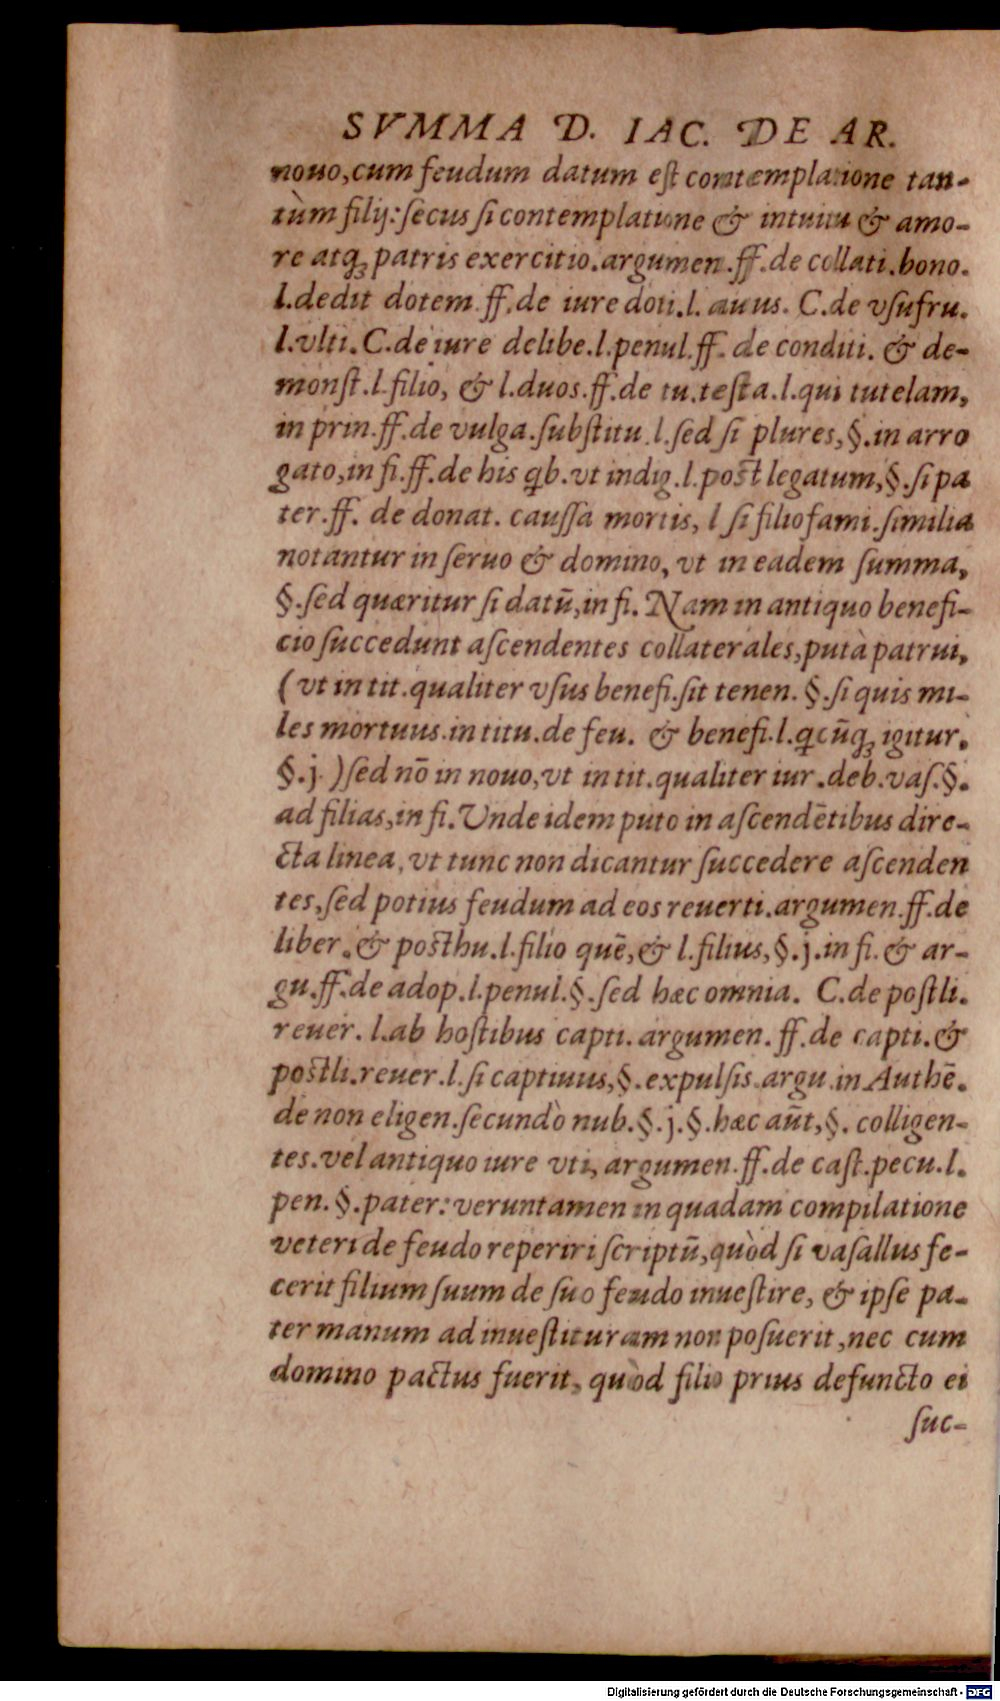 SVMMA D. IAC. DE AR.
nouo,cum feudum datum eſt contemplatione tan-
tùm filij:ſecus ſi contemplatione & intuitu & amo-
re atq; patris exercitio.argumen.ff.de collati.bono.
l.dedit dotem ff.de iure doti.l. auus. C.de vſufru.
l.vlti.C.de iure delibe.l.penul.ff. de conditi. & de-
monſt.l.filio, & l.duos.ff.de tu.teſta.l.qui tutelam,
in prin.ff.de vulga.ſubſtitu.l.ſed ſi plures,§.in arro
gato,in fi.ff.de his qb.vt indig.l.poſt legatum,§.ſi pa
ter.ff. de donat. cauſſa mortis, l ſi filiofami.ſimilia
notantur in ſeruo & domino, vt in eadem ſumma,
§.ſed quæritur ſi datū,in fi. Nam in antiquo benefi-
cio ſuccedunt aſcendentes collaterales,putà patrui,
(vt in tit.qualiter vſus benefi.ſit tenen. §.ſi quis mi-
les mortuus.in titu.de feu. & benefi.l.qcūq; igitur,
§.j.)ſed nō in nouo,vt in tit.qualiter iur.deb.vaſ.§.
ad filias,in fi.Unde idem puto in aſcendētibus dire-
cta linea,vt tunc non dicantur ſuccedere aſcenden
tes,ſed potius feudum ad eos reuerti.argumen.ff.de
liber.& poſthu.l.filio quē,& l.filius,§.j.in fi.& ar-
gu.ff.de adop.l.penul.§.ſed hæc omnia. C.de poſtli.
reuer. l.ab hoſtibus capti. argumen. ff.de capti.&
poſtli.reuer.l.ſi captiuus,§.expulſis.argu.in Authē.
de non eligen.ſecundò nub.§.j.§.hæc aūt,§. colligen-
tes.vel antiquo iure vti, argumen.ff.de caſt.pecu.l.
pen.§.pater:veruntamen in quadam compilatione
veteri de feudo reperiri ſcriptū,quòd ſi vaſallus fe-
cerit filium ſuum de ſuo feudo inueſtire, & ipſe pa-
ter manum ad inueſtituram non poſuerit,nec cum
domino pactus fuerit, quòd filio prius defuncto ei
ſuc-
Digitalisierung gefördert durch die Deutsche Forschungsgemeinschaft - DFG